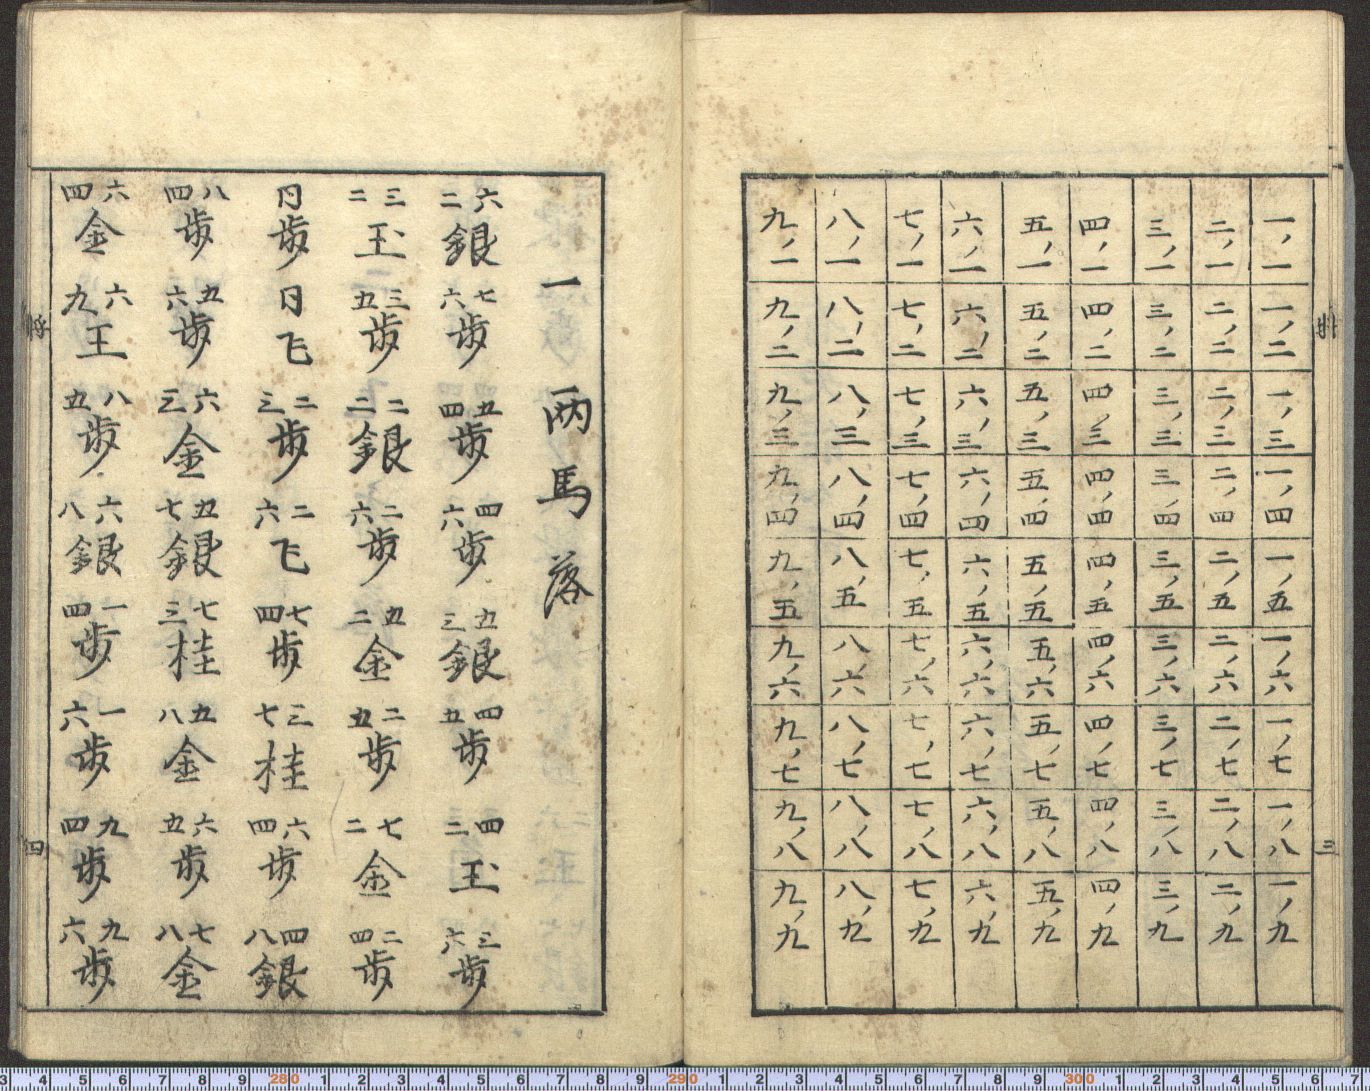 将 三
一ノ一 一ノ二 一ノ三 一ノ四 一ノ五 一ノ六 一ノ七 一ノ八 一ノ九
二ノ一 二ノ二 二ノ三 二ノ四 二ノ五 二ノ六 二ノ七 二ノ八 二ノ九
三ノ一 三ノ二 三ノ三 三ノ四 三ノ五 三ノ六 三ノ七 三ノ八 三ノ九
四ノ一 四ノ二 四ノ三 四ノ四 四ノ五 四ノ六 四ノ七 四ノ八 四ノ九
五ノ一 五ノ二 五ノ三 五ノ四 五ノ五 五ノ六 五ノ七 五ノ八 五ノ九
六ノ一 六ノ二 六ノ三 六ノ四 六ノ五 六ノ六 六ノ七 六ノ八 六ノ九
七ノ一 七ノ二 七ノ三 七ノ四 七ノ五 七ノ六 七ノ七 七ノ八 七ノ九
八ノ一 八ノ二 八ノ三 八ノ四 八ノ五 八ノ六 八ノ七 八ノ八 八ノ九
九ノ一 九ノ二 九ノ三 九ノ四 九ノ五 九ノ六 九ノ七 九ノ八 九ノ九
一 両馬落
六二銀 七六歩 五四歩 四六歩 五三銀 四五歩 四二玉 三六歩
三二玉 三五歩 二二銀 二六歩 五二金 二五歩 七二金 二四歩
同歩 同飞 二三歩 二六飞 七四歩 三七桂 六四歩 四八銀
八四歩 五六歩 六三金 五七銀 七三桂 五八金 六五歩 七八金
六四金 六九王 八五歩 六八銀 一四歩 一六歩 九四歩 九六歩
将 四